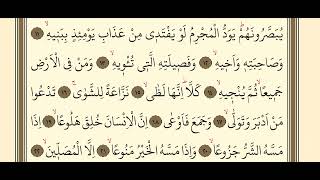 يُبَصَّرُونَهُمْ يَوَدُّ الْمُجْرِمُ لَوْ يَفْتَدٖى مِنْ عَذَابِ يَوْمِئِذٍ بِبَنٖيهِ ﴿١١﴾
وَصَاحِبَتِهٖ وَاَخٖيهِ ﴿١٢﴾ وَفَصٖيلَتِهِ الَّتٖى تُـْٔوٖيهِ ﴿١٣﴾ وَمَنْ فِى الْاَرْضِ
جَمٖيعًا ثُمَّ يُنْجٖيهِ ﴿١٤﴾ كَلَّا اِنَّهَا لَظٰى ﴿١٥﴾ نَزَّاعَةً لِلشَّوٰى ﴿١٦﴾ تَدْعُوا
مَنْ اَدْبَرَ وَتَوَلّٰى ﴿١٧﴾ وَجَمَعَ فَاَوْعٰى ﴿١٨﴾ اِنَّ الْاِنْسَانَ خُلِقَ هَلُوعًا ﴿١٩﴾ اِذَا
مَسَّهُ الشَّرُّ جَزُوعًا ﴿٢٠﴾ وَاِذَا مَسَّهُ الْخَيْرُ مَنُوعًا ﴿٢١﴾ اِلَّا الْمُصَلّٖينَ ﴿٢٢﴾